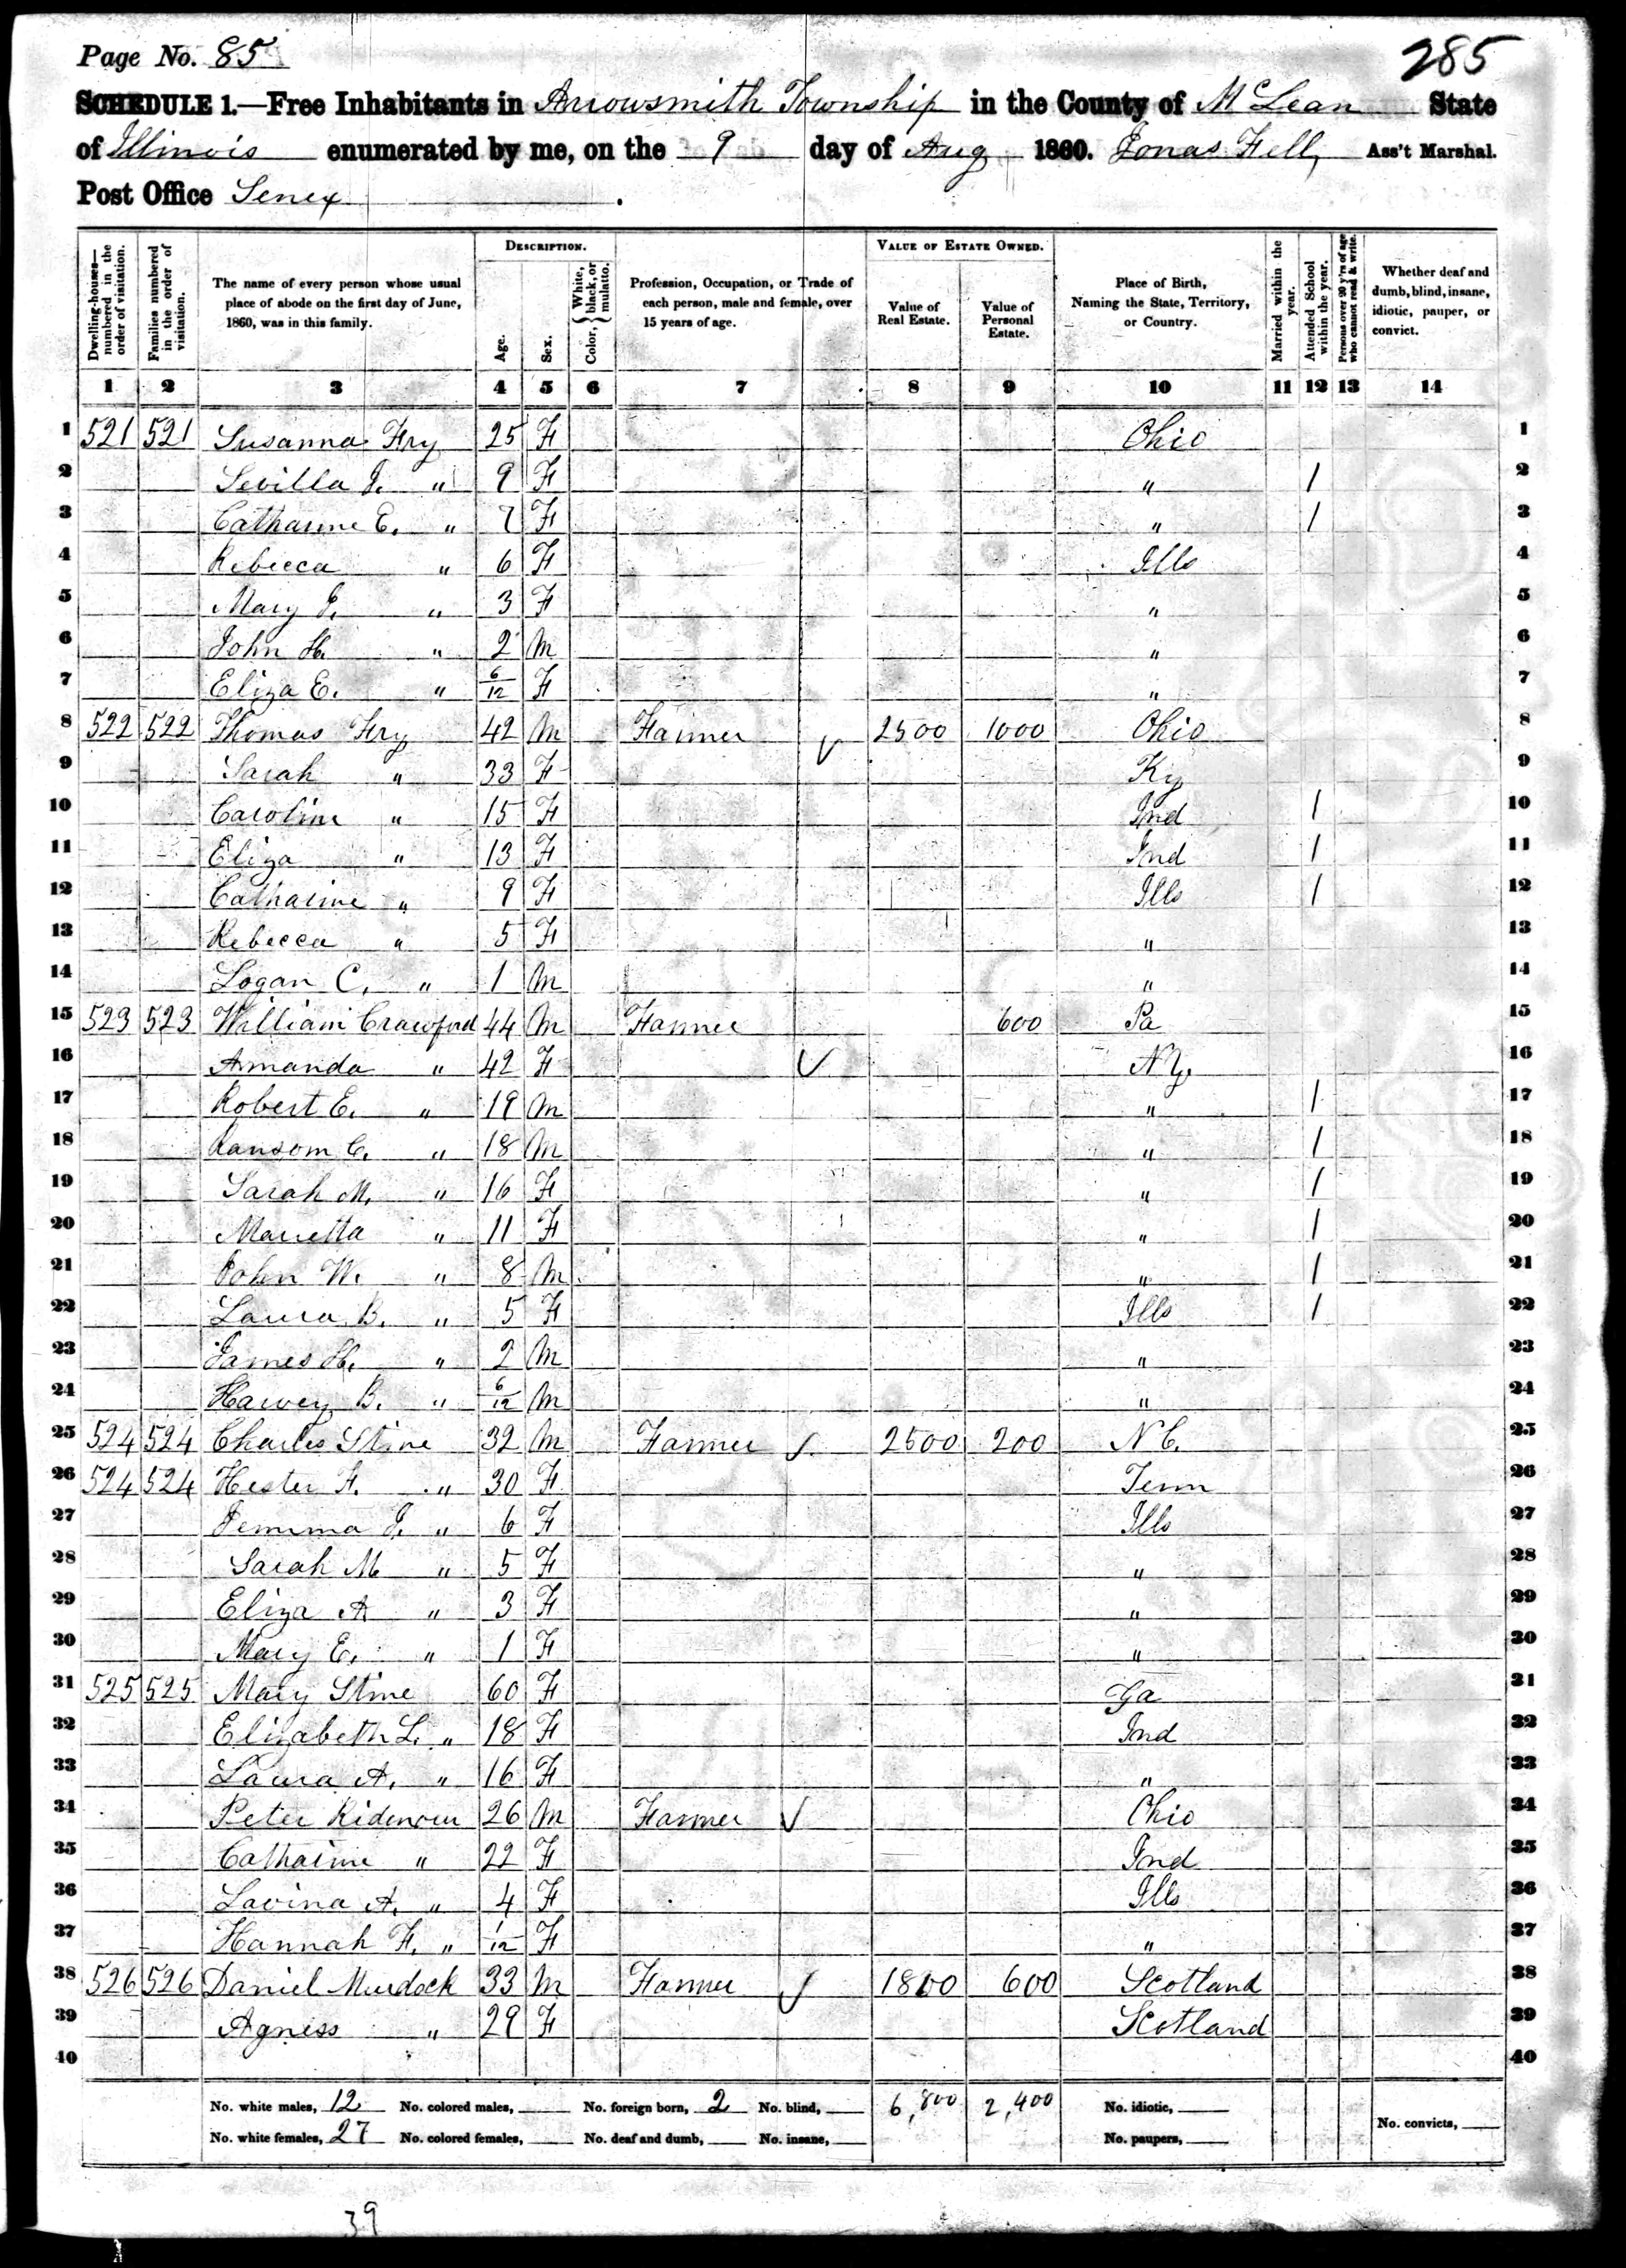 Page No. 85
285
SCHEDULE 1.—Free Inhabitants in Arrowsmith Township in the County of McLean State
of Illinois enumerated by me, on the 9 day of Aug 1860. Jonas Fell, Ass't Marshal.
Post Office Senex.
Dwelling-houses—numbered in the order of visitation.
Families numbered in the order of visitation.
The name of every person whose usual place of abode on the first day of June, 1860, was in this family.
DESCRIPTION.
Age.
Sex.
Color, { White, black, or mulatto.
Profession, Occupation, or Trade of each person, male and female, over 15 years of age.
VALUE OF ESTATE OWNED.
Value of Real Estate.
Value of Personal Estate.
Place of Birth, Naming the State, Territory, or Country.
Married within the year.
Attended School within the year.
Persons over 20 y'rs of age who cannot read & write.
Whether deaf and dumb, blind, insane, idiotic, pauper, or convict.
1 2 3 4 5 6 7 8 9 10 11 12 13 14
1 521 521 Susanna Fry 25 F Ohio 1
2 Sevilla J. " 9 F " / 2
3 Catharine E. " 7 F " / 3
4 Rebecca " 6 F Ills 4
5 Mary J. " 3 F " 5
6 John H. " 2 M " 6
7 Eliza E. " 6/12 F " 7
8 522 522 Thomas Fry 42 M Farmer ✓ 2500 1000 Ohio 8
9 Sarah " 33 F Ky 9
10 Caroline " 15 F Ind / 10
11 Eliza " 13 F Ind / 11
12 Catharine " 9 F Ills / 12
13 Rebecca " 5 F " 13
14 Logan C. " 1 M " 14
15 523 523 William Crawford 44 M Farmer 600 Pa 15
16 Amanda " 42 F ✓ N.Y. 16
17 Robert E. " 19 M " / 17
18 Ransom C. " 18 M " / 18
19 Sarah M. " 16 F " / 19
20 Marietta " 11 F " / 20
21 John W. " 8 M " / 21
22 Laura B. " 5 F Ills / 22
23 James H. " 2 M " 23
24 Harvey B. " 6/12 M " 24
25 524 524 Charles Stine 32 M Farmer ✓ 2500 200 N C. 25
26 524 524 Hester F. " 30 F Tenn 26
27 Jemima J. " 6 F Ills 27
28 Sarah M " 5 F " 28
29 Eliza A " 3 F " 29
30 Mary E. " 1 F " 30
31 525 525 Mary Stine 60 F Ga 31
32 Elizabeth L. " 18 F Ind 32
33 Laura A. " 16 F " 33
34 Peter Ridenour 26 M Farmer ✓ Ohio 34
35 Catharine " 22 F Ind 35
36 Lavina A. " 4 F Ills 36
37 Hannah F. " 1/12 F " 37
38 526 526 Daniel Murdock 33 M Farmer ✓ 1800 600 Scotland 38
39 Agness " 29 F Scotland 39
40 40
No. white males, 12 No. colored males, No. foreign born, 2 No. blind, 6,800 2,400 No. idiotic,
No. white females, 27 No. colored females, No. deaf and dumb, No. insane, No. paupers, No. convicts,
39